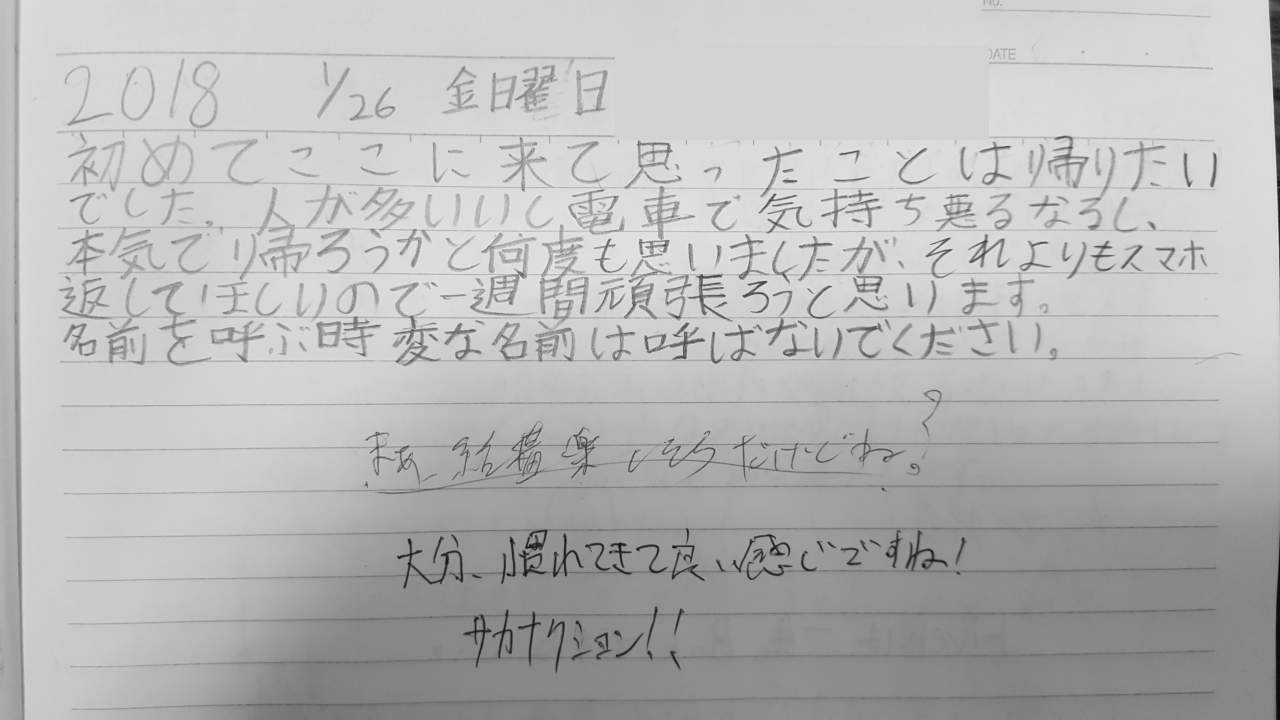 No.
DATE
2018 1/26 金曜日
初めてここに来て思ったことは帰りたい
でした。人が多いいし電車で気持ち悪るなるし、
本気で帰ろうかと何度も思いましたが、それよりもスマホ
返してほしいので一週間頑張ろうと思います。
名前を呼ぶ時変な名前は呼ばないでください。
まぁ、結構楽しそうだけどね。?
大分、慣れてきて良い感じですね!
サカナクション!!